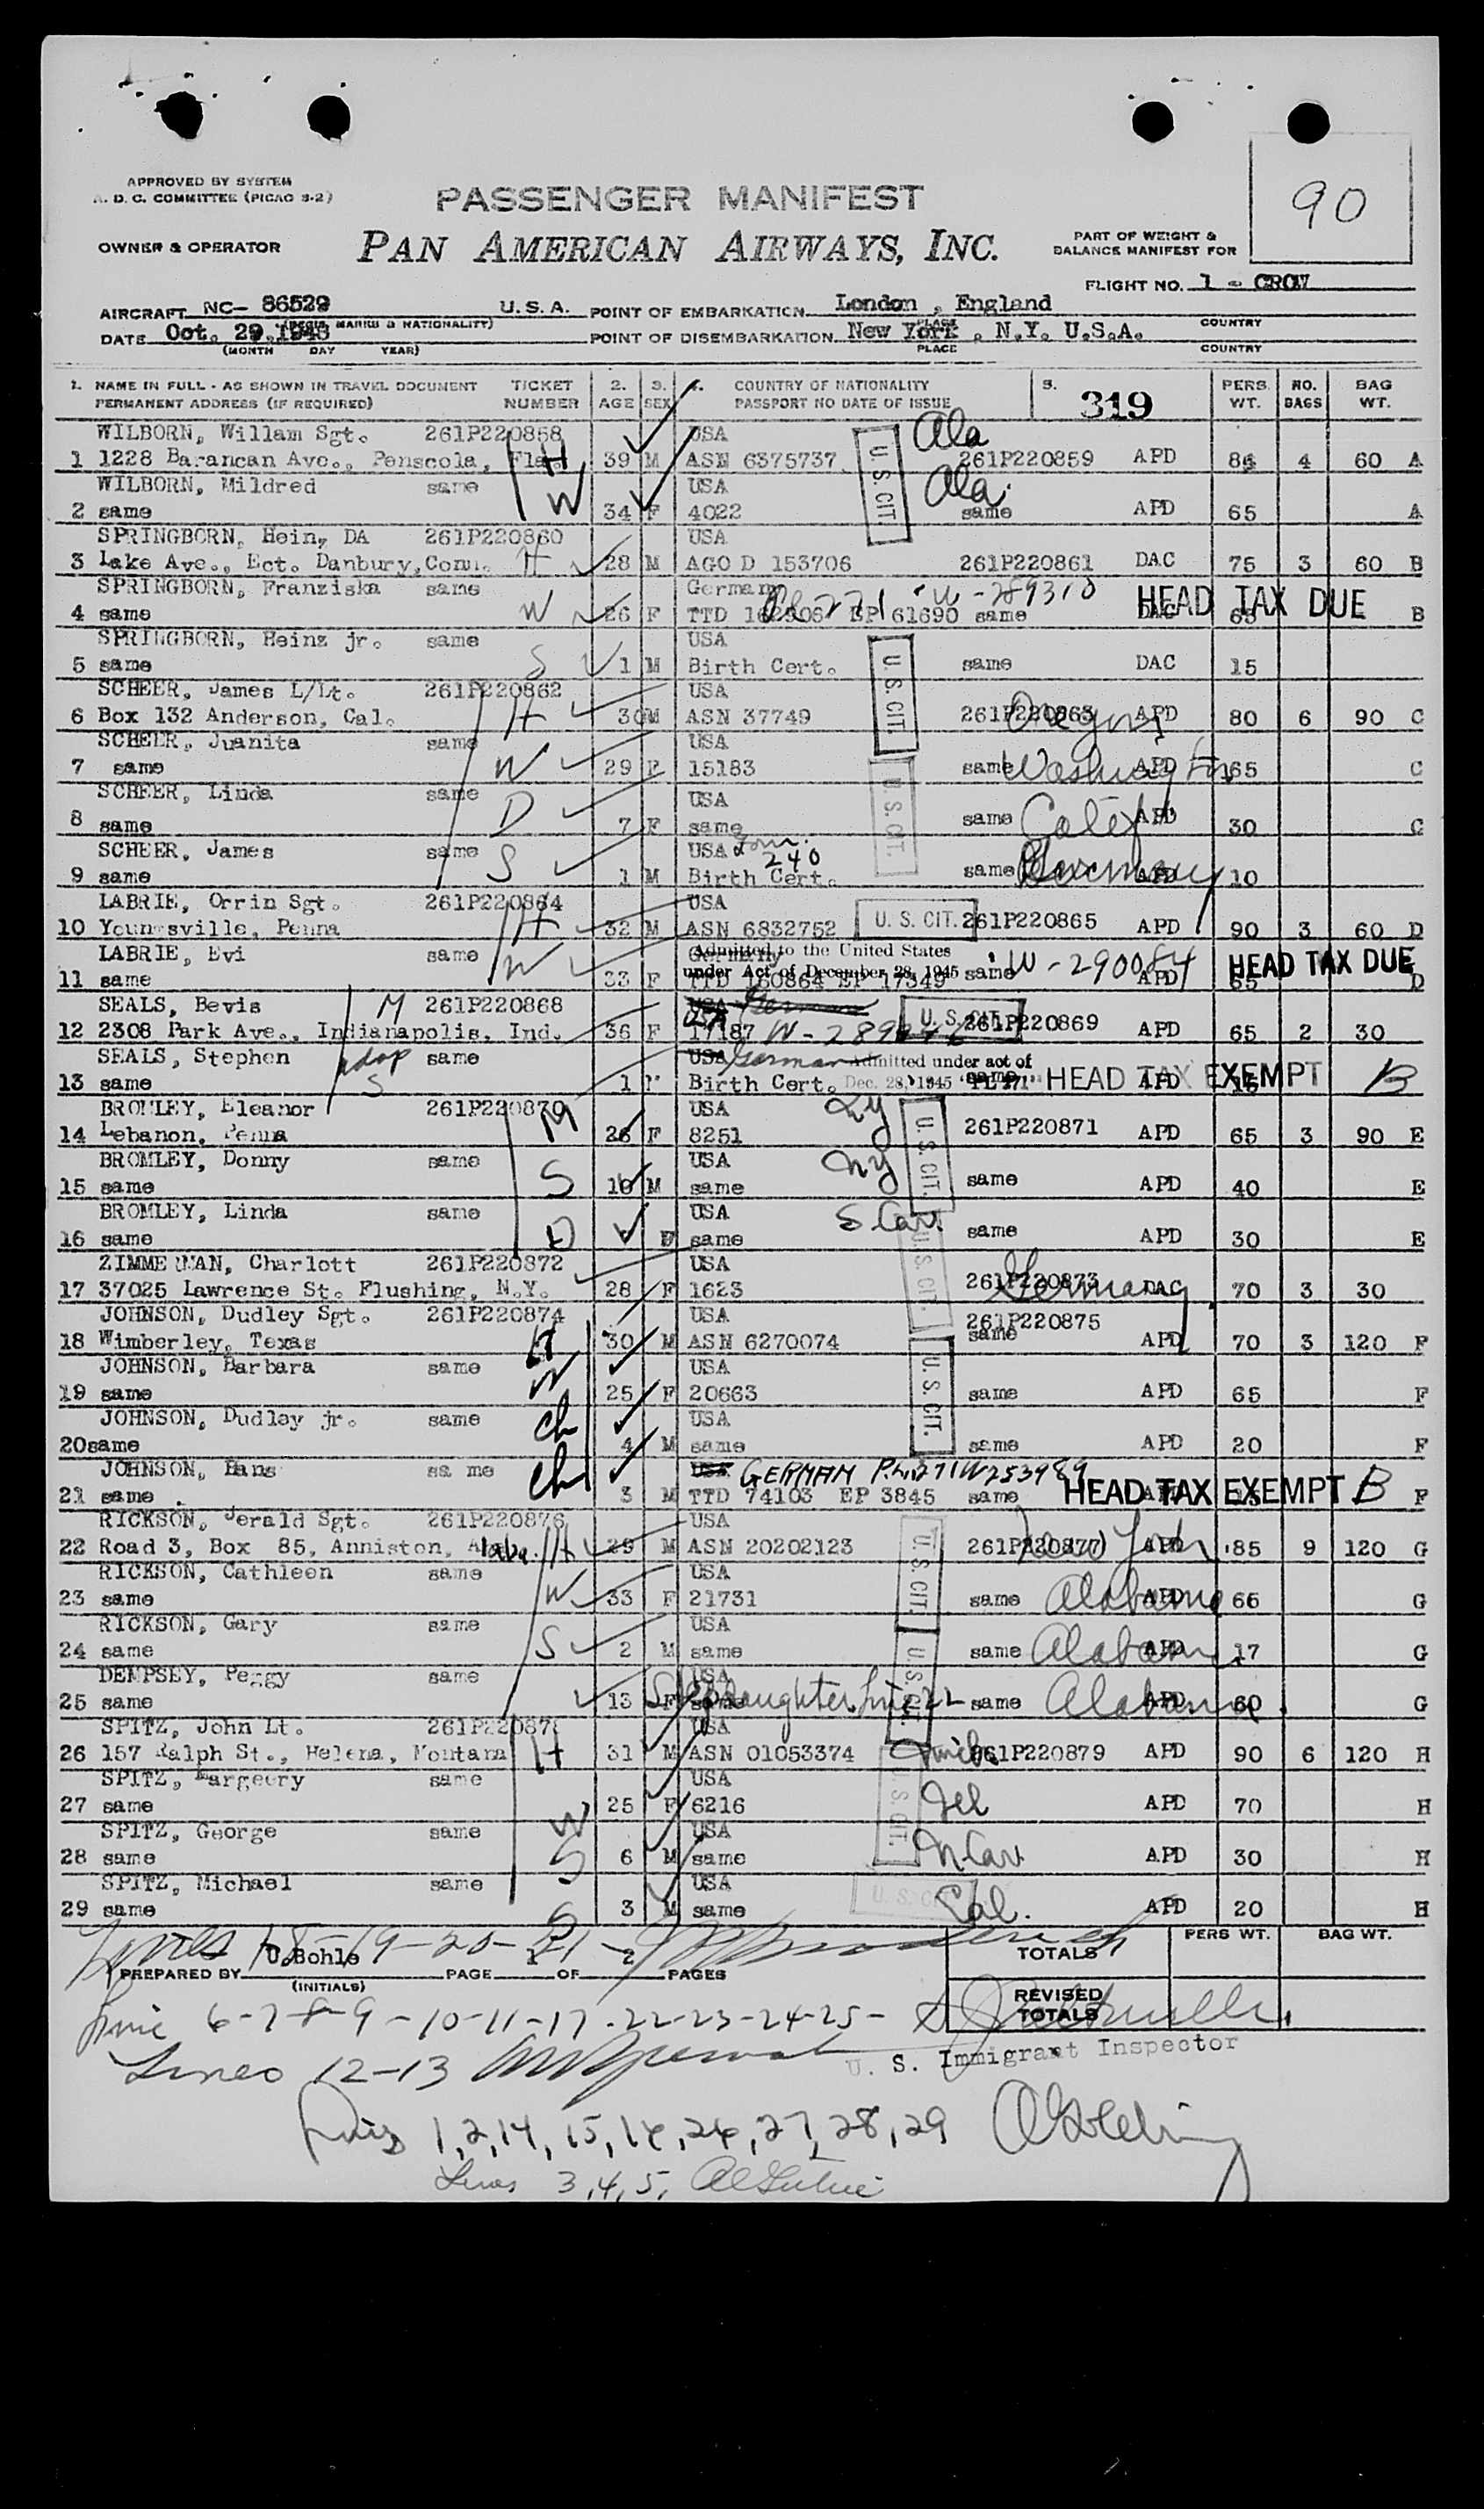 90
APPROVED BY SYSTEM
A. D. C. COMMITTEE (PICAO S-2)
PASSENGER MANIFEST
OWNER & OPERATOR
PAN AMERICAN AIRWAYS, INC.
PART OF WEIGHT &
BALANCE MANIFEST FOR
FLIGHT NO. 1 -
AIRCRAFT NC- 86529 U.S.A. POINT OF EMBARKATION London , England
MARKS & NATIONALITY) PLACE COUNTRY
DATE Oct. 29, POINT OF DISEMBARKATION New York , N.Y. U.S.A.
(MONTH DAY YEAR) PLACE COUNTRY
1. NAME IN FULL - AS SHOWN IN TRAVEL DOCUMENT TICKET 2. 3. 4. COUNTRY OF NATIONALITY 5. 319 PERS. NO. BAG
PERMANENT ADDRESS (IF REQUIRED) NUMBER AGE SEX PASSPORT NO DATE OF ISSUE WT. BAGS WT.
WILBORN, Willam Sgt. 261P220858 USA Ala
1 1228 Barancan Ave., Penscola, Fla. H 39 M ASN 6375737 U.S. CIT. 261P220859 APD 4 60 A
WILBORN, Mildred same USA Ala.
2 same W 34 F 4022 same APD 65 A
SPRINGBORN, Hein, DA 261P220860 USA
3 Lake Ave., Ect. Danbury, Conn. H 28 M AGO D 153706 261P220861 DAC 75 3 60 B
SPRINGBORN, Franziska same Germany W-289310 HEAD TAX DUE
4 same W 26 F TTD EP 61690 same DAC 65 B
SPRINGBORN, Heinz jr. same USA
5 same S 1 M Birth Cert. U.S. CIT. same DAC 15
SCHEER, James L/Lt. 261P220862 USA
6 Box 132 Anderson, Cal. H 30 M ASN 37749 261P220863 Oregon APD 80 6 90 C
SCHEER, Juanita same USA
7 same W 29 F 15183 same Washington APD 65 C
SCHEER, Linda same USA U.S. CIT.
8 same D 7 F same same Calif APD 30 C
SCHEER, James same USA 240
9 same S 1 M Birth Cert. same Germany APD 10
LABRIE, Orrin Sgt. 261P220864 USA
10 Younsville, Penna H 32 M ASN 6832752 U. S. CIT. 261P220865 APD 90 3 60 D
LABRIE, Evi same Germany Admitted to the United States W-290084 HEAD TAX DUE
11 same W 33 F under Act of December 28, 1945 TTD 160864 EP 17349 same APD 65 D
SEALS, Bevis M 261P220868 USA U. S. CIT.
12 2308 Park Ave., Indianapolis, Ind. 36 F 17187 261P220869 APD 65 2 30
SEALS, Stephen adop same USA German Admitted under act of
13 same S 1 Birth Cert. Dec. 28, 1945 same HEAD TAX EXEMPT APD B
BROMLEY, Eleanor 261P220870 USA
14 Lebanon, Penna M 26 F 8251 U.S. CIT. 261P220871 APD 65 3 90 E
BROMLEY, Donny same USA NY
15 same S 10 M same same APD 40 E
BROMLEY, Linda same USA S Car.
16 same D F same same APD 30 E
ZIMMERMAN, Charlott 261P220872 USA U.S. CIT.
17 37025 Lawrence St. Flushing, N.Y. 28 F 1623 261P220873 Germany DAC 70 3 30
JOHNSON, Dudley Sgt. 261P220874 USA 261P220875
18 Wimberley, Texas H 30 M ASN 6270074 same APD 70 3 120 F
JOHNSON, Barbara same USA
19 same W 25 F 20663 U.S. CIT. same APD 65 F
JOHNSON, Dudley jr. same USA
20same ch 4 M same same APD 20 F
JOHNSON, Hans sa me USA GERMAN P.L.271 W253989
21 same . ch 3 M TTD 74103 EP 3845 same HEAD TAX EXEMPT B F
RICKSON, Jerald Sgt. 261P220876 USA
22 Road 3, Box 85, Anniston, Alaba. H 29 M ASN 20202123 U.S. CIT. 261P220877 New York APD 85 9 120 G
RICKSON, Cathleen same USA
23 same W 33 F 21731 same Alabama APD 65 G
RICKSON, Gary same USA
24 same S 2 M same U.S. CIT. same Alabama APD 17 G
DEMPSEY, Peggy same USA
25 same 13 F same Stepdaughter Line 22 same Alabama APD 60 G
SPITZ, John Lt. 261P220878 USA
26 157 Ralph St., Helena, Montana H 31 M ASN 01053374 261P220879 APD 90 6 120 H
SPITZ, Margeery same USA
27 same W 25 F 6216 U.S. CIT. Ill APD 70 H
SPITZ, George same USA
28 same S 6 M same N Car. APD 30 H
SPITZ, Michael same USA
29 same S 3 M same U. S. CIT. Cal. APD 20 H
Lines 18-19-20-21-
PREPARED BY U.Bohle PAGE 1 OF 2 PAGES TOTALS PERS WT. BAG WT.
(INITIALS)
REVISED TOTALS
Line 6-7-8-9-10-11-17-22-23-24-25-
U. S. Immigrant Inspector
Lines 12-13
Lines 1,2,14,15,16,26,27,28,29
Lines 3,4,5,